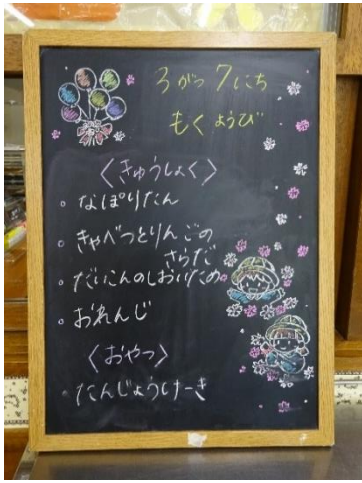 3がつ7にち
もくようび
〈きゅうしょく〉
。なぽりたん
。きゃべつとりんごの
さらだ
。だいこんのしおいため
。おれんじ
〈おやつ〉
・たんじょうけーき